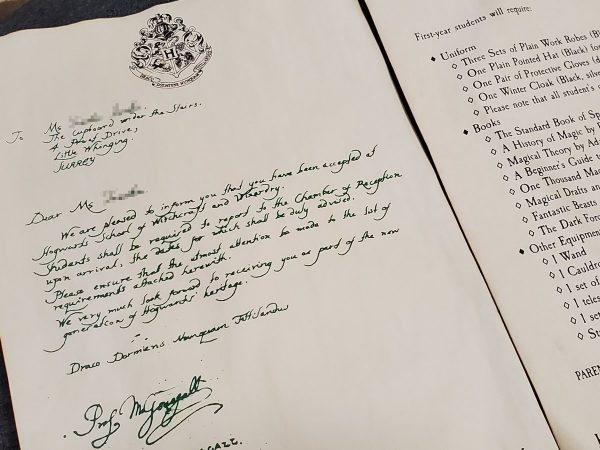 To Ms
The Cupboard under the Stairs,
4 Privet Drive,
Little Whinging,
SURREY
Dear Ms
We are pleased to inform you that you have been accepted at
Hogwarts School of Witchcraft and Wizardry.
Students shall be required to report to the Chamber of Reception
upon arrival, the dates for which shall be duly advised.
Please ensure that the utmost attention be made to the list of
requirements attached herewith.
We very much look forward to receiving you as part of the new
generation of Hogwarts' heritage.
Draco Dormiens Nunquam Titillandus
Prof. McGonagall
First-year students will require:
Uniform
Three Sets of Plain Work Robes (Bl
One Plain Pointed Hat (Black) fo
One Pair of Protective Gloves (d
One Winter Cloak (Black, silve
Please note that all student's c
Books
The Standard Book of Sp
A History of Magic by B
Magical Theory by Ada
A Beginner's Guide t
One Thousand Mag
Magical Drafts an
Fantastic Beasts
The Dark For
Other Equipmen
1 Wand
1 Cauldro
1 set of
1 teles
1 set
St
PAREN